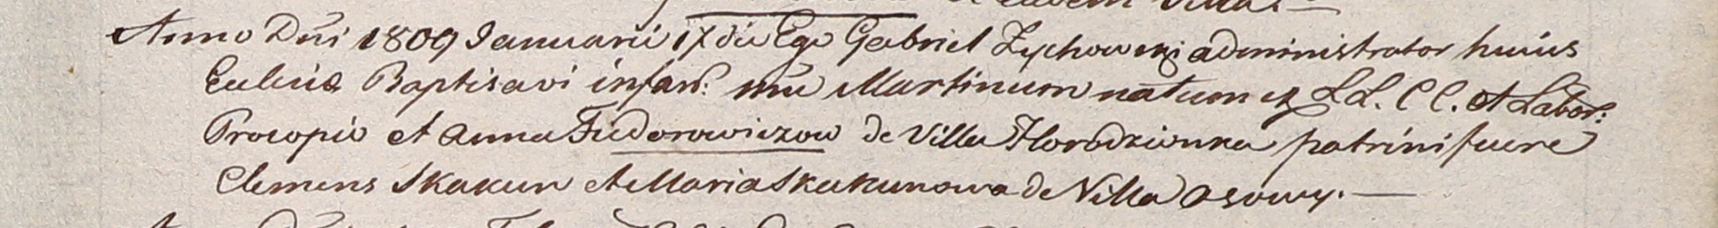 Anno Dni 1809 Januarii 17 die Ego Gabriel Zychowski administrator huius
Eccliae Baptisavi infan: nnē Martinum natum ex LL. CC. et Labor:
Procopio et Anna Fiedorowiczow de Villa Horodzionka patrini fuere
Clemens Skakun et Maria Skakunowa de Villa Osowy.